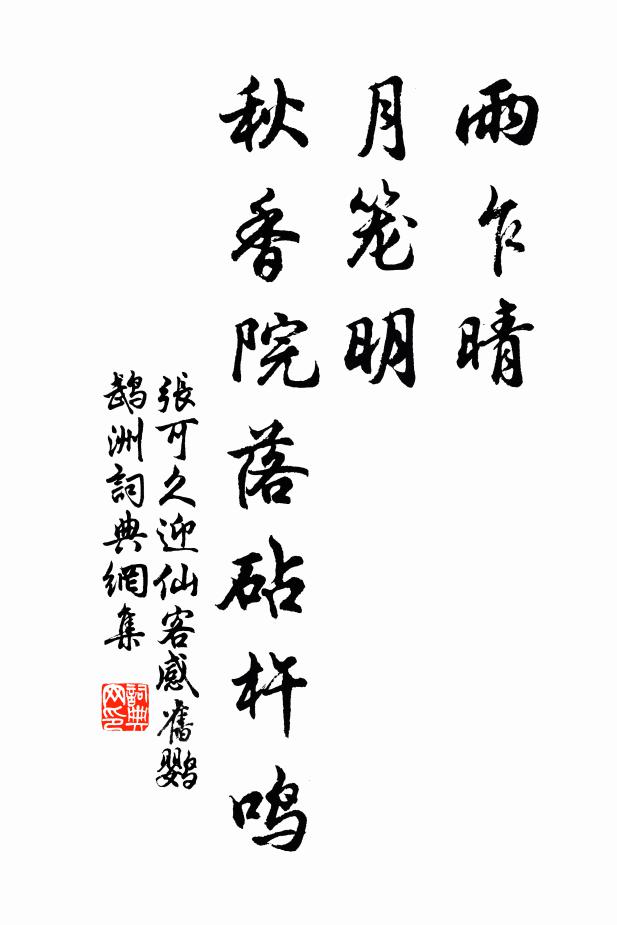 雨乍晴
月笼明
秋香院落砧杵鸣
張可久迎仙客感舊鸚
鵡洲詞典網集
詞典
网印